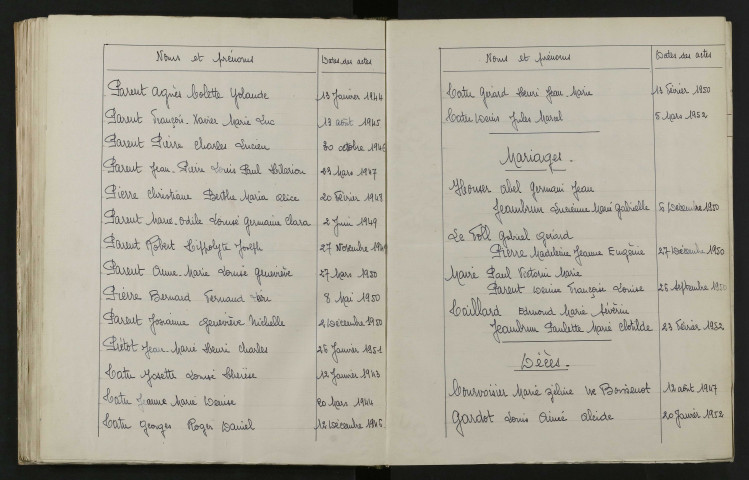 Noms et prénoms Dates des actes
Parent Agnès Colette Yolande 13 Janvier 1944
Parent François-Xavier Marie Luc 13 août 1945
Parent Pierre Charles Lucien 30 octobre 1946
Parent Jean-Pierre Louis Paul Hilarion 23 Mars 1947
Pierre Christiane Berthe Maria Alice 20 Février 1948
Parent Marie-Odile Louise Germaine Clara 2 Juin 1949
Parent Robert Hippolyte Joseph 27 Novembre 1949
Parent Anne-Marie Louise Geneviève 27 Mars 1950
Pierre Bernard Fernand Léon 8 Mai 1950
Parent Josianne Geneviève Michelle 2 Décembre 1950
Prétot Jean Marie Henri Charles 25 Janvier 1951
Catu Josette Louise Thérèse 12 Janvier 1943
Catu Jeanne Marie Denise 20 Mars 1944
Catu Georges Roger Daniel 12 Décembre 1945
Noms et prénoms Dates des actes
Catu Gérard Henri Jean-Marie 13 Février 1950
Catu Denis Jules Marcel 5 Mars 1952
Mariages.
Houser Abel Germain Jean
Jeanbrun Lucienne Marie Gabrielle 5 Décembre 1950
Le Foll Gabriel Gérard
Pierre Madeleine Jeanne Eugénie 27 Décembre 1950
Marie Paul Victorin Marie
Parent Denise Françoise Louise 25 Septembre 1950
Caillard Edmond Marie Séverin
Jeanbrun Paulette Marie Clotilde 23 Février 1952
Décès.
Courvoisier Marie Zéline Ve Boissenot 12 août 1947
Gardot Louis Aimé Alcide 20 Janvier 1952